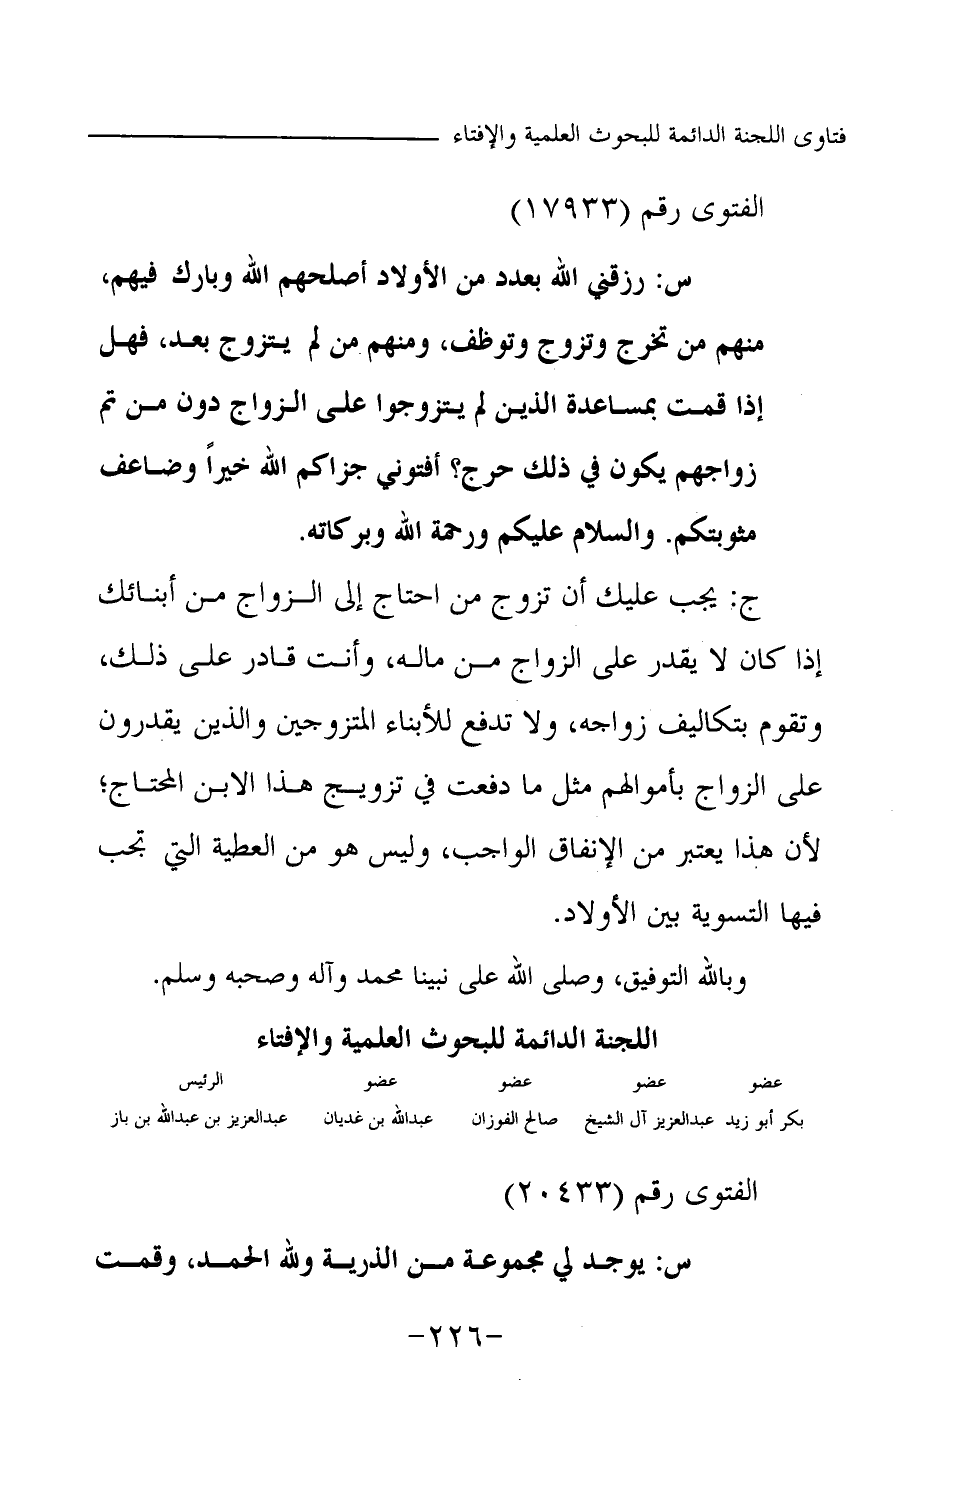 فتاوى اللجنة الدائمة للبحوث العلمية والإفتاء
الفتوى رقم (١٧٩٣٣)
س: رزقني الله بعدد من الأولاد أصلحهم الله وبارك فيهم،
منهم من تخرج وتزوج وتوظف، ومنهم من لم يتزوج بعد، فهل
إذا قمت بمساعدة الذين لم يتزوجوا على الزواج دون من تم
زواجهم يكون في ذلك حرج؟ أفتوني جزاكم الله خيراً وضاعف
مثوبتكم. والسلام عليكم ورحمة الله وبركاته.
ج: يجب عليك أن تزوج من احتاج إلى الزواج من أبنائك
إذا كان لا يقدر على الزواج من ماله، وأنت قادر على ذلك،
وتقوم بتكاليف زواجه، ولا تدفع للأبناء المتزوجين والذين يقدرون
على الزواج بأموالهم مثل ما دفعت في تزويج هذا الابن المحتاج؛
لأن هذا يعتبر من الإنفاق الواجب، وليس هو من العطية التي تجب
فيها التسوية بين الأولاد.
وبالله التوفيق، وصلى الله على نبينا محمد وآله وصحبه وسلم.
اللجنة الدائمة للبحوث العلمية والإفتاء
عضو عضو عضو عضو الرئيس
بكر أبو زيد عبدالعزيز آل الشيخ صالح الفوزان عبدالله بن غديان عبدالعزيز بن عبدالله بن باز
الفتوى رقم (٢٠٤٣٣)
س: يوجد لي مجموعة من الذرية ولله الحمد، وقمت
-٢٢٦-